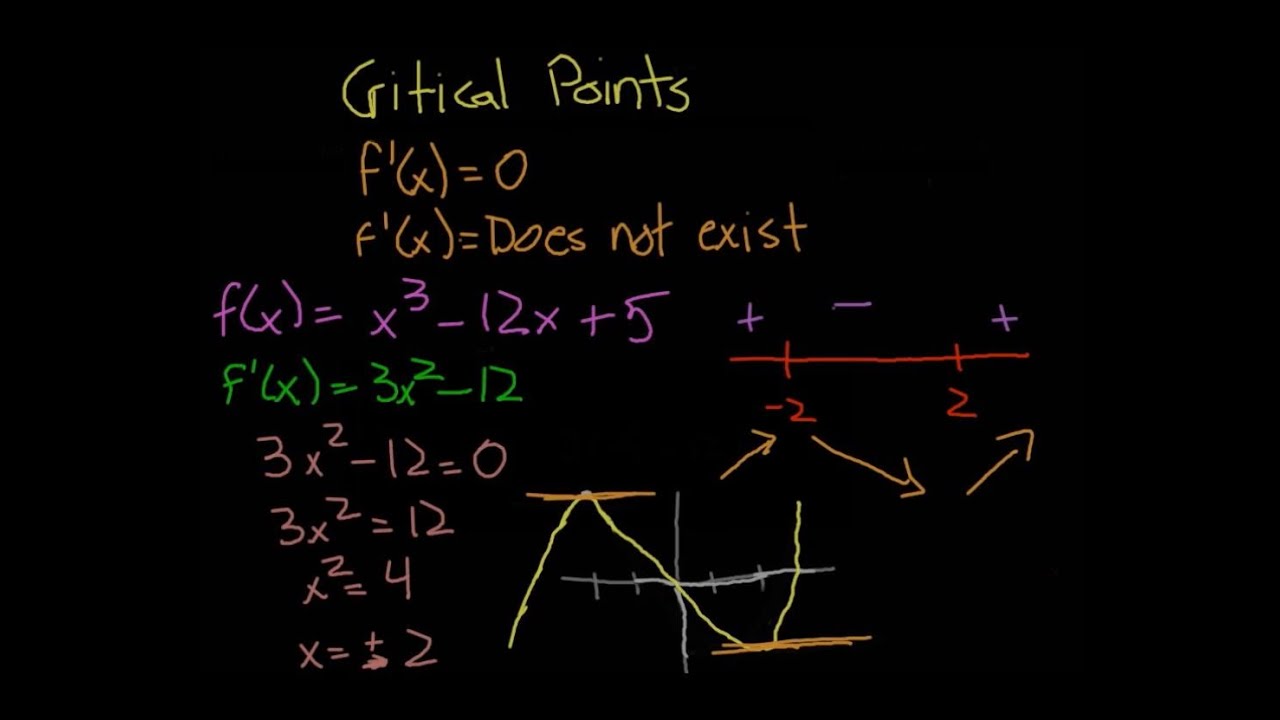 Critical Points
f'(x) = 0
f'(x) = Does not exist
f(x) = x³ - 12x + 5
+ - +
f'(x) = 3x² - 12
-2 2
3x² - 12 = 0
3x² = 12
x² = 4
x = ± 2